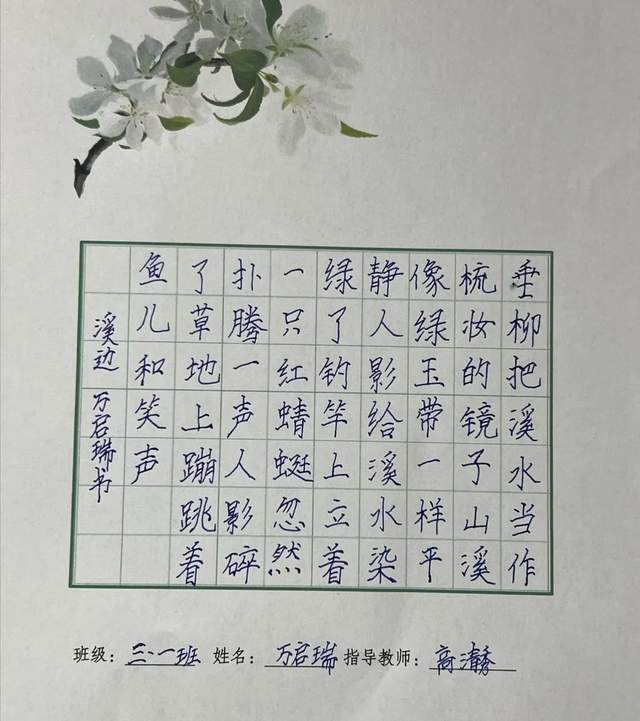 垂柳把溪水当作
梳妆的镜子山溪
像绿玉带一样平
静人影给溪水染
绿了钓竿上立着
一只红蜻蜓忽然
扑腾一声人影碎
了草地上蹦跳着
鱼儿和笑声
溪边 万启瑞书
班级：三.一班 姓名：万启瑞 指导教师：高